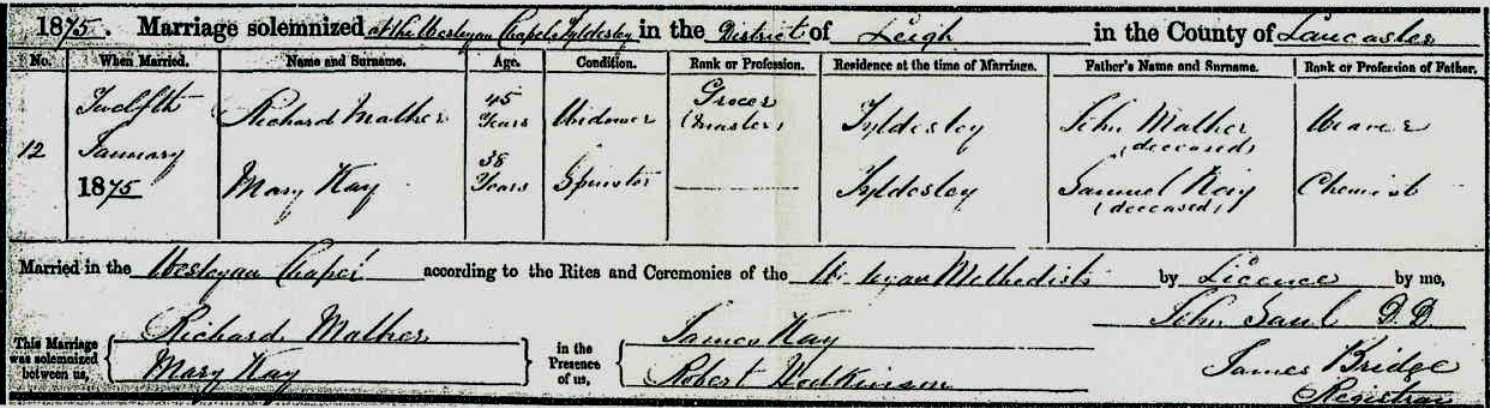 1875. Marriage solemnized at the Wesleyan Chapel Tyldesley in the District of Leigh in the County of Lancaster
No. When Married. Name and Surname. Age. Condition. Rank or Profession. Residence at the time of Marriage. Father's Name and Surname. Rank or Profession of Father.
12 Twelfth January 1875
Richard Mather 45 Years Widower Grocer (Master) Tyldesley John Mather (deceased) Weaver
Mary Kay 38 Years Spinster ——— Tyldesley Samuel Kay (deceased) Chemist
Married in the Wesleyan Chapel according to the Rites and Ceremonies of the Wesleyan Methodists by Licence by me,
John Saul D.D.
This Marriage was solemnized between us, Richard Mather Mary Kay in the Presence of us, James Kay Robert Hodkinson
James Bridge
Registrar